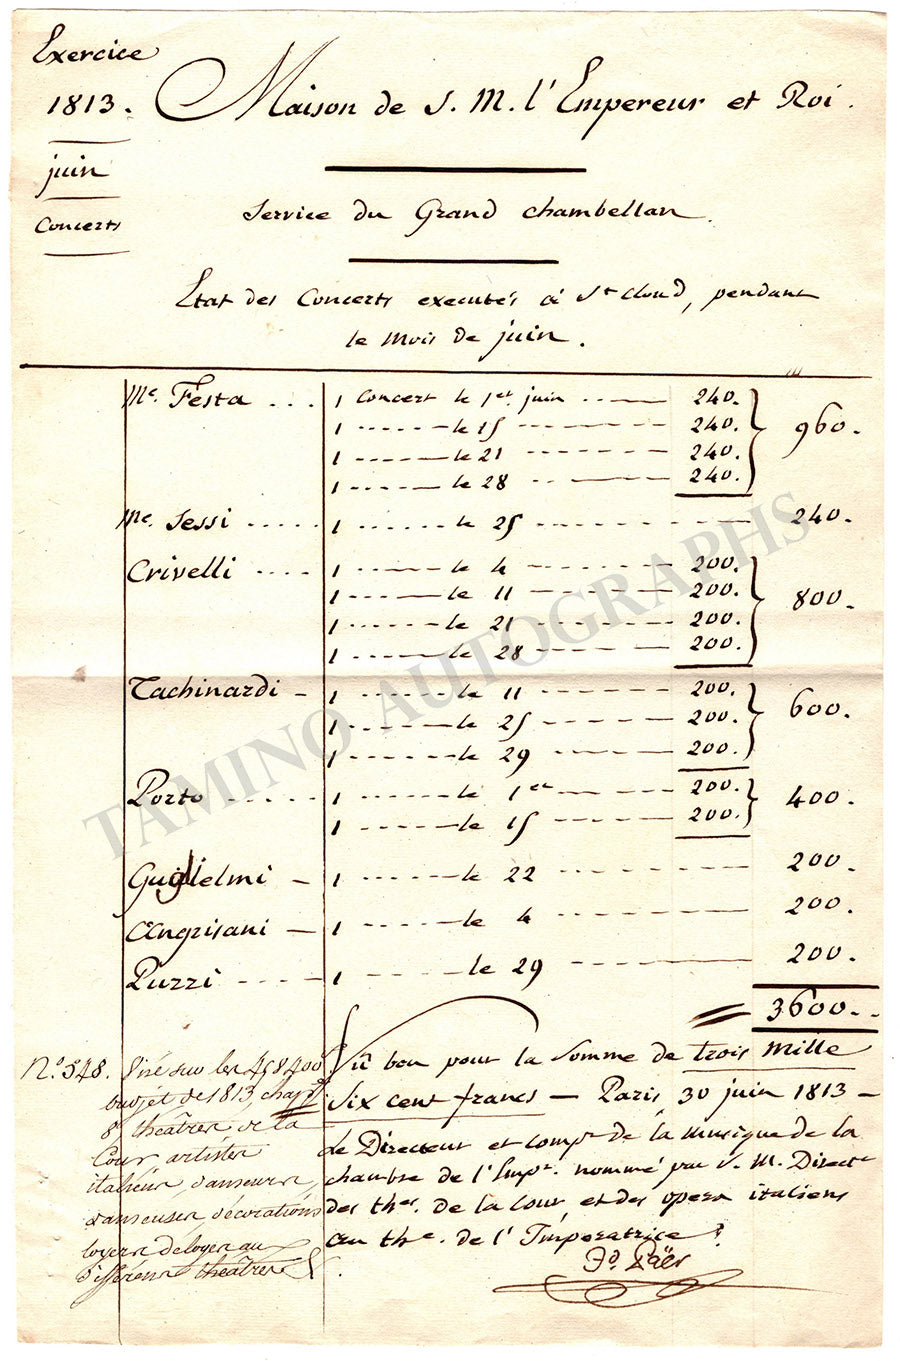 Exercice
1813.
juin
Concerts
Maison de S. M. l'Empereur et Roi.
Service du Grand Chambellan.
Etat des Concerts executés à St Cloud, pendant
le mois de juin.
Me. Festa ... 1 Concert le 1er juin ... 240.
1 ...... le 15 ...... 240.
1 ...... le 21 ...... 240.
1 ...... le 28 ...... 240.
960.
Me. Sessi ..... 1 ...... le 25 ...... 240.
Crivelli .... 1 ...... le 4 ...... 200.
1 ...... le 11 ...... 200.
1 ...... le 21 ...... 200.
1 ...... le 28 ...... 200.
800.
Tachinardi - 1 ...... le 11 ...... 200.
1 ...... le 25 ...... 200.
1 ...... le 29 ...... 200.
600.
Porto ..... 1 ...... le 1er ...... 200.
1 ...... le 15 ...... 200.
400.
Guglielmi - 1 ...... le 22 ...... 200.
Angrisani - 1 ...... le 4 ...... 200.
Puzzi .... 1 ...... le 29 ...... 200.
3600.
Vû bon pour la Somme de trois mille
Six cent francs - Paris 30 juin 1813 -
Le Directeur et compr de la musique de la
chambre de l'Empr. nommé par S. M. Directr
des thes. de la Cour, et des opera italiens
au the. de l'Impératrice.
Fd. Paër
No. 548.
sur les 458400
budjet de 1813, chap
8 théâtres de la
Cour artistes
italiens, danseurs,
danseuses, décorations
loyers de loges aux
différens théâtres
TAMINO AUTOGRAPHS